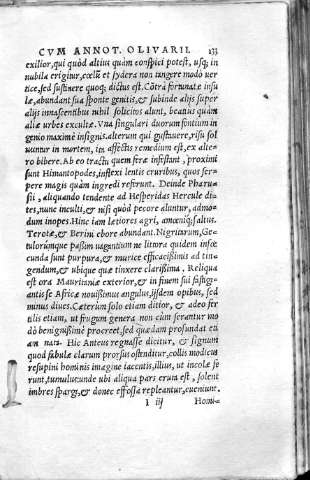 CVM ANNOT. OLIVARII. 133
exilior, qui quòd altius quàm conspici potest, usq; in
nubila erigitur, cœlũ et sydera non tangere modò uer
tice, sed sustinere quoq; dictus est. Cõtrà fortunatæ insu
læ, abundant sua sponte genitis, & subinde alijs super
alijs innascentibus nihil solicitos alunt, beatius quàm
aliæ urbes excultæ. Vna singulari duorum fontium in
genio maximè insignis. alterum qui gustauere, risu sol
uuntur in mortem, ita affectis remedium est, ex alte-
ro bibere. Ab eo tractu quem feræ infestant, proximi
sunt Himantopodes, inflexi lentis cruribus, quos ser-
pere magis quàm ingredi referunt. Deinde Pharu-
sii, aliquando tendente ad Hesperidas Hercule di-
tes, nunc inculti, & nisi quòd pecore aluntur, admo-
dum inopes. Hinc iam lætiores agri, amœniq; saltus.
Terotæ, & Berini ebore abundant. Nigritarum, Gæ-
tulorúnque passim uagantium ne litora quidem infœ-
cunda sunt purpura, & murice efficacissimis ad tin-
gendum, & ubique quæ tinxere clarissima. Reliqua
est ora Mauritaniæ exterior, & in finem sui fastigi-
antis se Africæ nouissimus angulus, ijsdem opibus, sed
minus diues. Cæterùm solo etiam ditior, & adeo fer
tilis etiam, ut frugum genera non cùm serantur mo
dò benignissimè procreet, sed quædam profundat eti
am nata. Hic Anteus regnasse dicitur, & signum
quod fabulæ clarum prorsus ostenditur, collis modicus
resupini hominis imagine iacentis, illius, ut incolæ fe
runt, tumulus: unde ubi aliqua pars eruta est, solent
imbres spargi, & donec effossa repleantur, eueniunt.
I iij Homi-